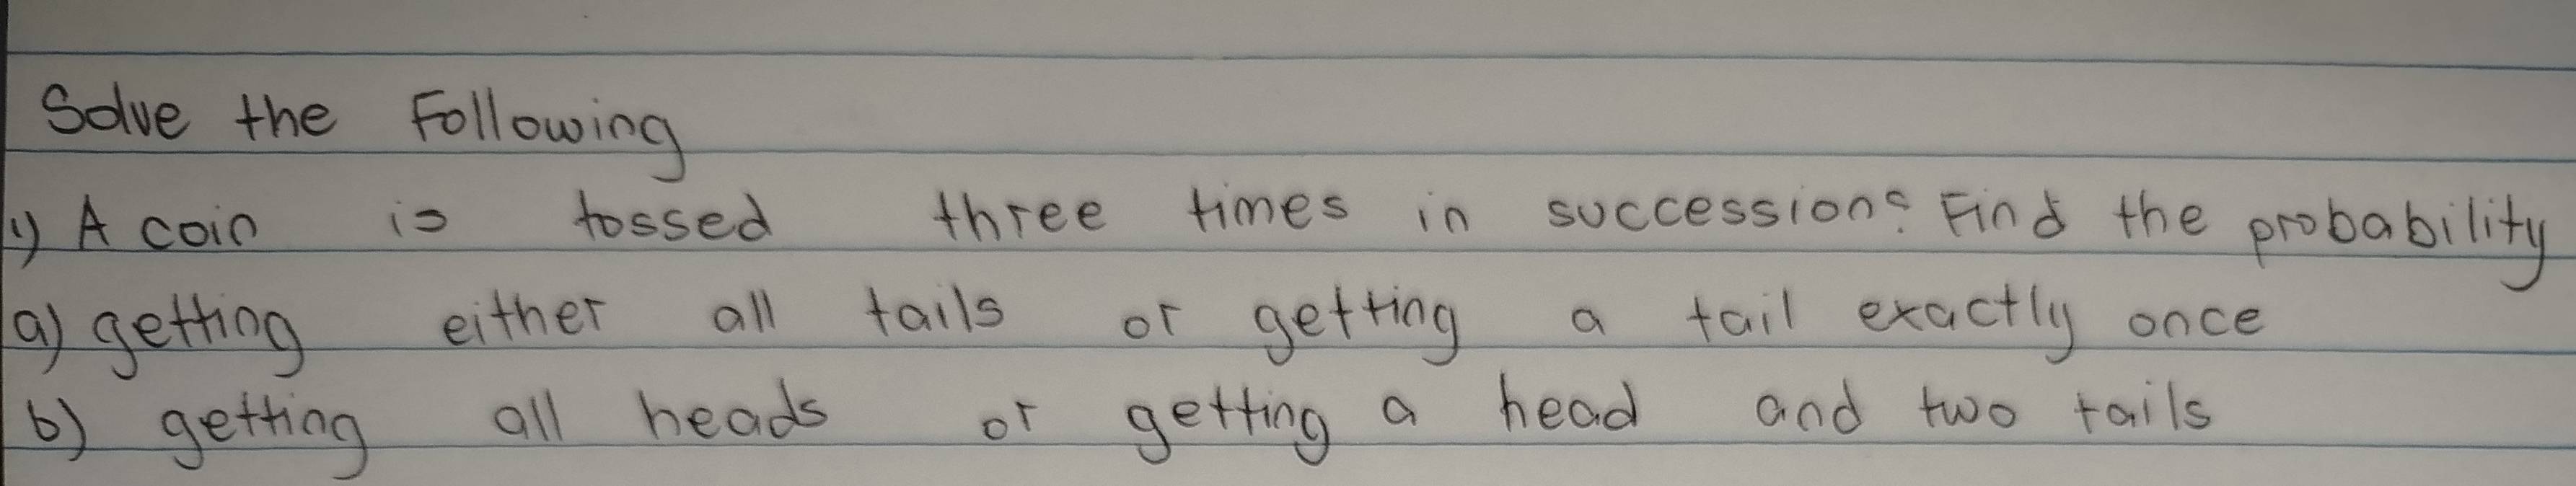 Solve the Following
1) A coin is tossed three times in succession? Find the probability
a) getting either all tails or getting a tail exactly once
b) getting all heads or getting a head and two tails